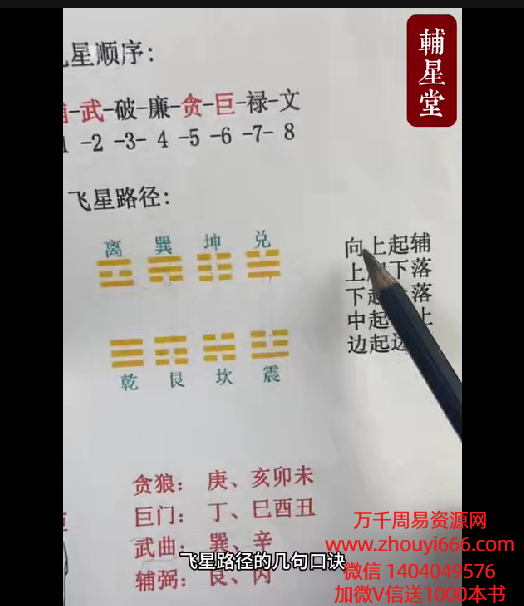 輔星堂
星顺序:
-武-破-廉-贪-巨-禄-文
1 -2 -3- 4 -5 -6 -7- 8
飞星路径:
离 巽 坤 兑
向上起辅
上 下落
下起 落
中起 上
边起边
乾 艮 坎 震
贪狼: 庚、亥卯未
巨门: 丁、巳酉丑
武曲: 巽、辛
辅弼: 艮、丙
飞星路径的几句口诀
万千周易资源网
www.zhouyi666.com
微信 1404049576
加微V信送1000本书